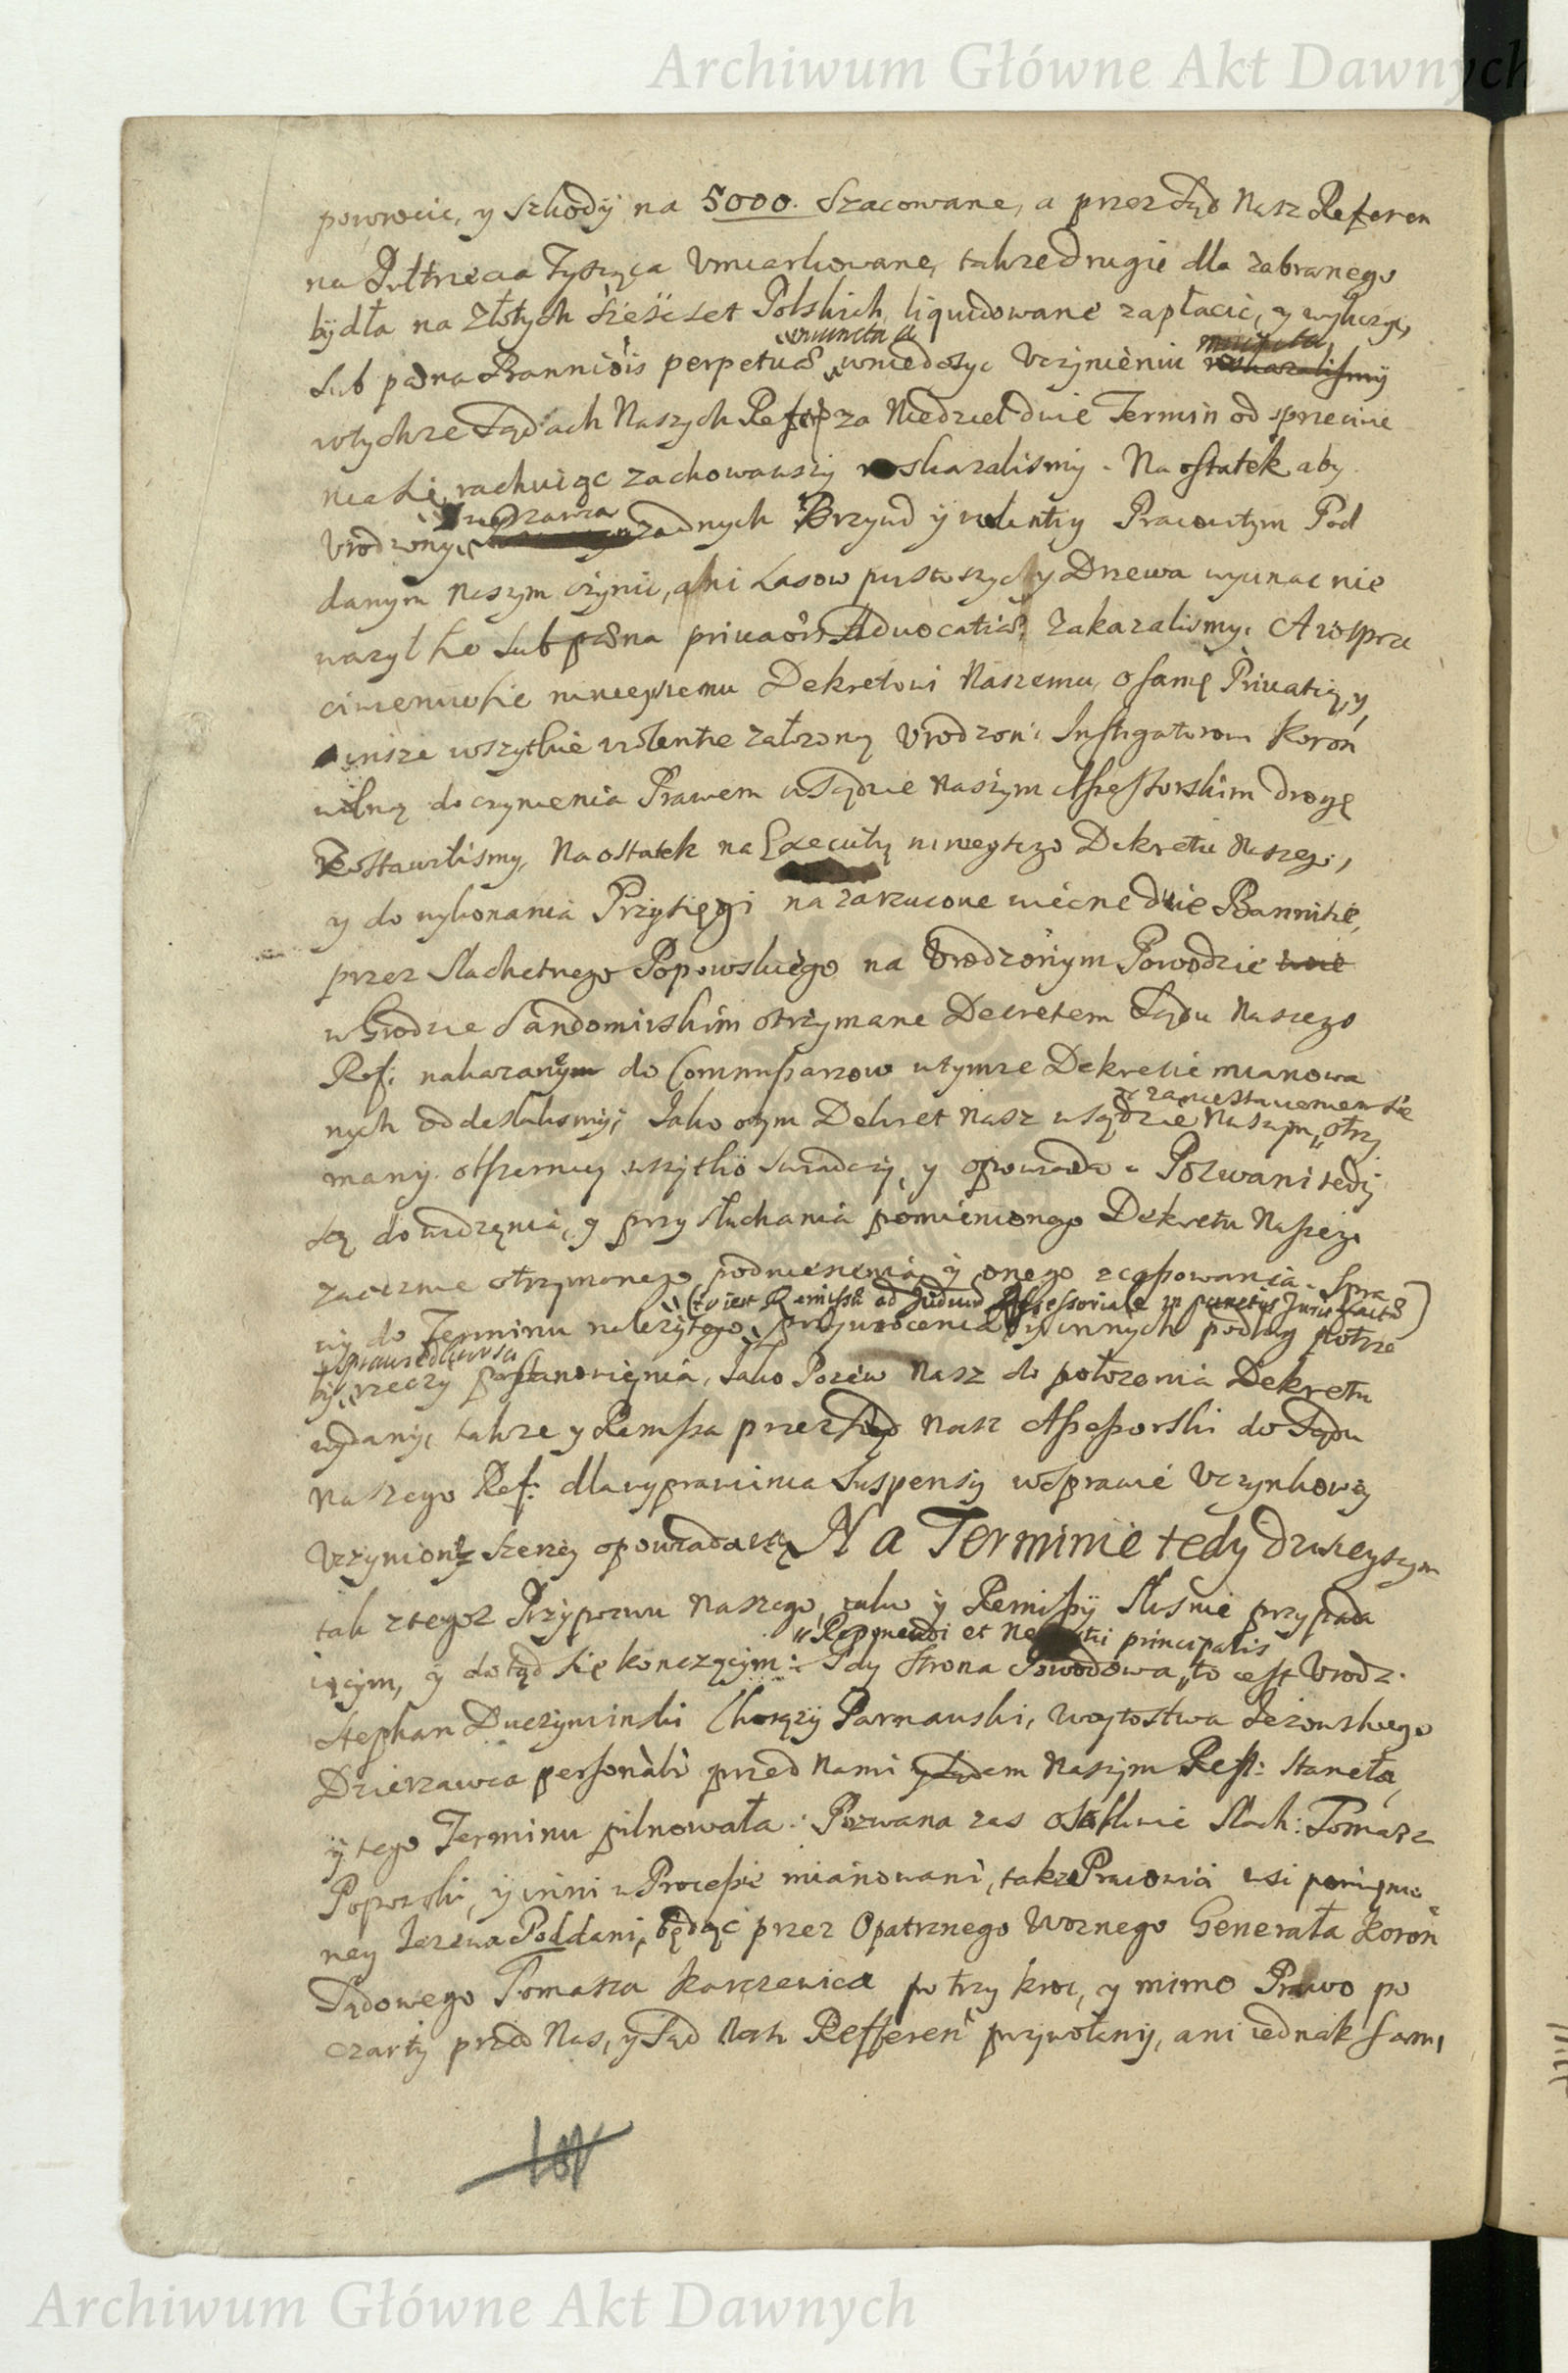 Archiwum Główne Akt Dawnych
powrocic, y szkody na 5000. Szacowane, a przez Sąd Nasz Referen
na Pułtrzecia Tysiąca Vmiarkowane, takze drugie dla zabranego
bydła na Złotych Sześcset Polskich liquidowane zapłacic, y wyliczyc,
sub pæna Bannióis perpetuæ wniedosyc Vczynieniu roskazalismy
wtychze Sądach Naszych Refer za Niedziel dwie Termin od sprzeciwie
nia sie rachuiąc zachowawszy roskazalismy. Na ostatek aby
Vrodzony Dzierzawca zadnych Krzywd y violentiy Pracowitym Pod
danym Naszym czynic, ani Lasow pustoszyc y Drzewa wycinac nie
wazył sie sub pæna priuaóis Aduocatiæ, Zakazalismy. A wsprze
ciwieniu sie ninieyszemu Dekretowi Naszemu, o samę Priuatią, y
insze wszytkie violentie załozoną Vrodzon: Instigatorowi Koron
wolną do czynienia Prawem w Sądzie Naszym Assessorskim drogę
Zostawilismy, Na ostatek na Executią ninieyszego Dekretu Naszego,
y do wykonania Przysięgi na zarzucone wiecne dwie Bannitie,
przez Slachetnego Popowskiego na Vrodzonym Powodzie dwie
w Grodzie Sandomirskim otrzymane Decretem Sądu Naszego
Ref: nakazane do Commissarzow wtymze Dekrecie mianowa
z zaniestawieniem sie
nych oddeslalismy; Jako o tym Dekret Nasz w Sądzie Naszym otrzy
many. obszerniey wszytko swiadczy, y opowiada. Pozwani tedy
są do widzęnia, y przysłuchania pomienionego Dekretu Naszego
zaocznie otrzymanego podniesienia y onego zcassowania. Spra
(to iest Remissą ad Judium Assessoriale in punctis Juris
wy do Terminu nalezytego przywrocenia y innych podług potrze
sprawiedliwosci
by rzeczy postanowięnia, Jako Pozew Nasz do połozenia Dekretu
wydany, takze y Remissa przez Sąd Nasz Assessorski do Sądu
Naszego Ref: dla wyprawienia Suspensiy w Sprawie Vczynkowey
Vczyniona szerzey opowiadaią. Na Terminie tedy dzisieyszym
tak z tegoz Przypozwu Naszego, iako y Remissÿ Słusnie przypada
Reponendi et Ne principalis
iącym, y dotąd się konczącym: Gdy Strona Powodowa to iest Vrodz:
Stephan Duczyminski Chorązy Parnauski, Woytostwa Jezowskiego
Dzierzawca personàli przed Nami y Sądem Naszym Reff: Staneła,
y tego Terminu pilnowała: Pozwana zas osobliwie Slach: Tomasz
Popowski, y inni w Processie mianowani, takze Pracowici wsi pomienio
ney Jezowa Poddani, będąc przez Opatrznego Woznego Generała Koron
Sądowego Tomasza Karczewica po trzy kroc, y mimo Prawo po
czwarty przed Nas, y Sąd Nasz Refferen przywołani, ani iednak sami
Archiwum Główne Akt Dawnych